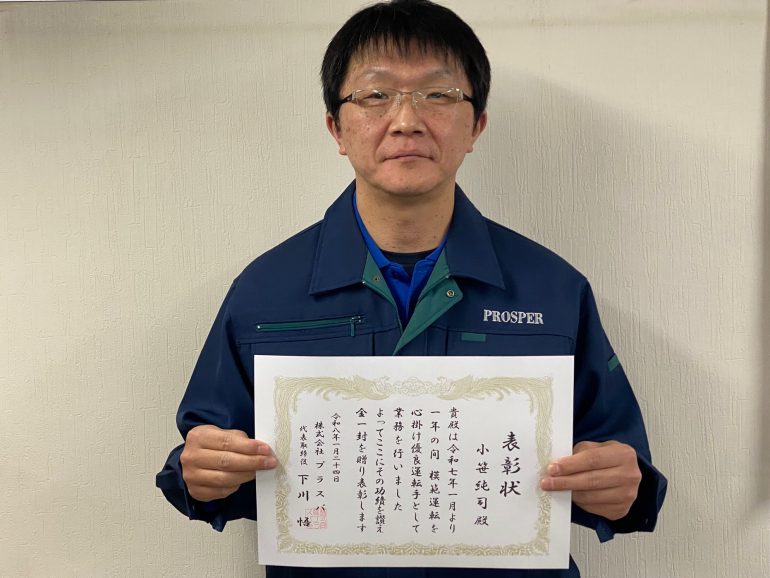 PROSPER
表彰状
小笹純司殿
貴殿は令和七年一月より
一年の間 模範運転を
心掛け優良運転手として
業務を行いました
よってここにその功績を讃え
金一封を贈り表彰します
令和八年一月二十四日
株式会社プラスパ
代表取締役 下川